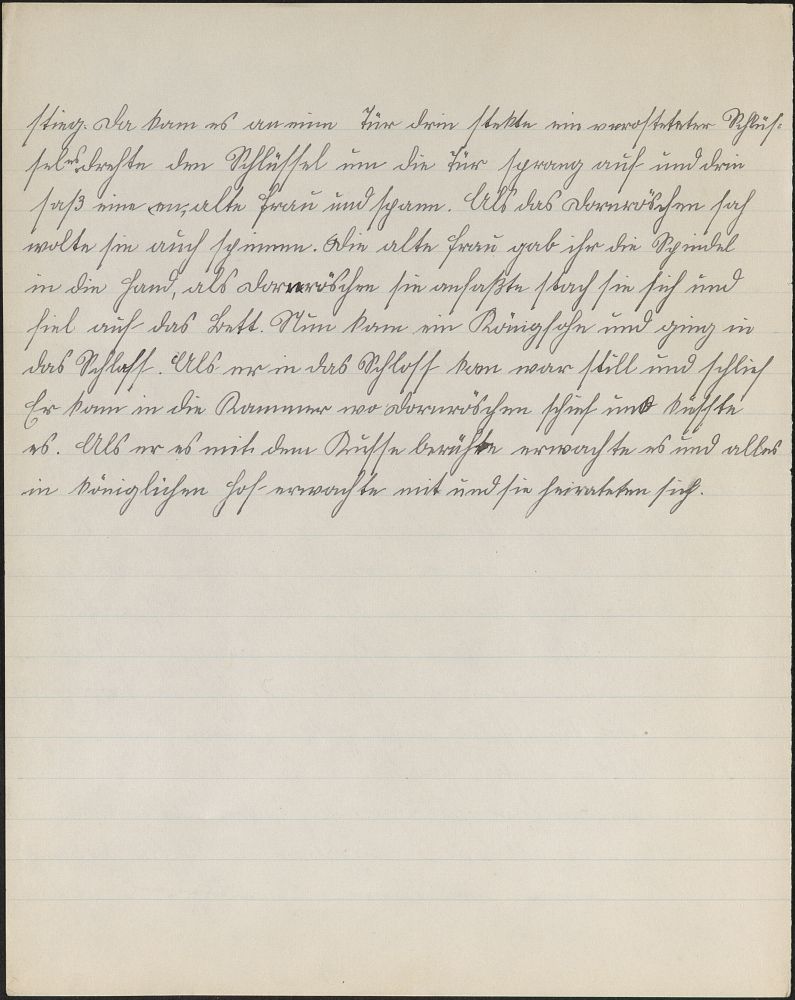 stieg. Da kam es an eine Tür drin stekte ein verosteteter Schlüs-
sel es drehte den Schlüssel um die Tür sprang auf und drin
saß eine alte Frau und spann. Als das Dornröschen sah
wolte sie auch spinnen. Die alte Frau gab ihr die Spindel
in die Hand, als Dornröschen sie anfaßte stach sie sich und
fiel auf das Bett. Nun kam ein Königsohn und ging in
das Schloss. Als er in das Schloss kam war still und schlief
Er kam in die Kammer wo Dornröschen schief und küsste
es. Als er es mit dem Kusse berührte erwachte es und alles
in königlichen Hof erwachte mit und sie heirateten sich.